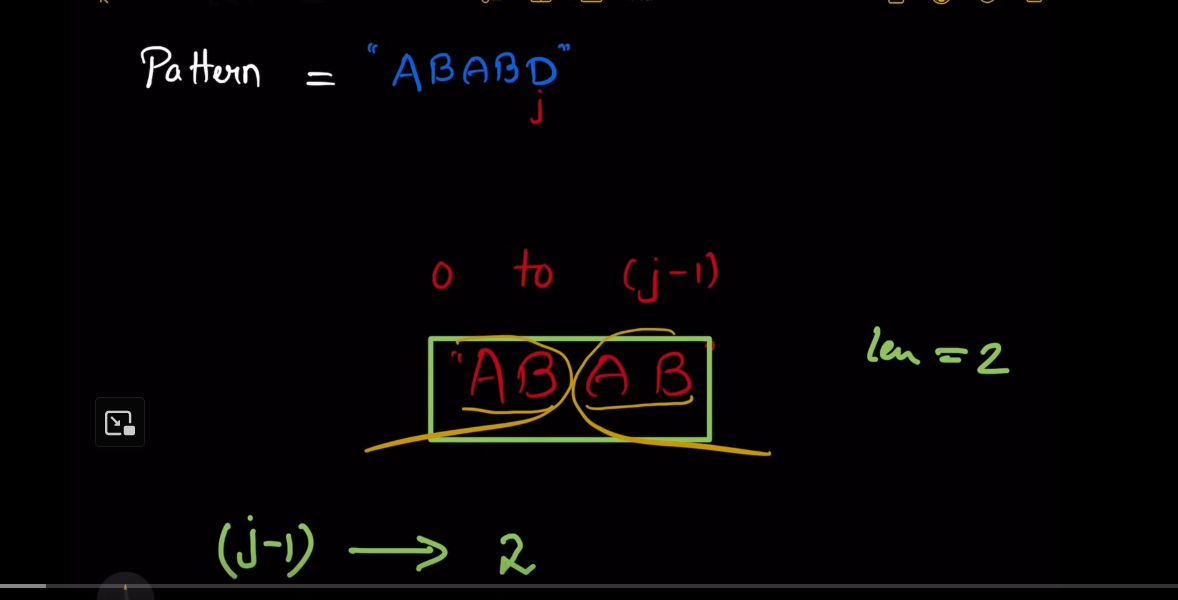 Pattern = "ABABD"
j
0 to (j-1)
"ABAB"
len = 2
(j-1) → 2